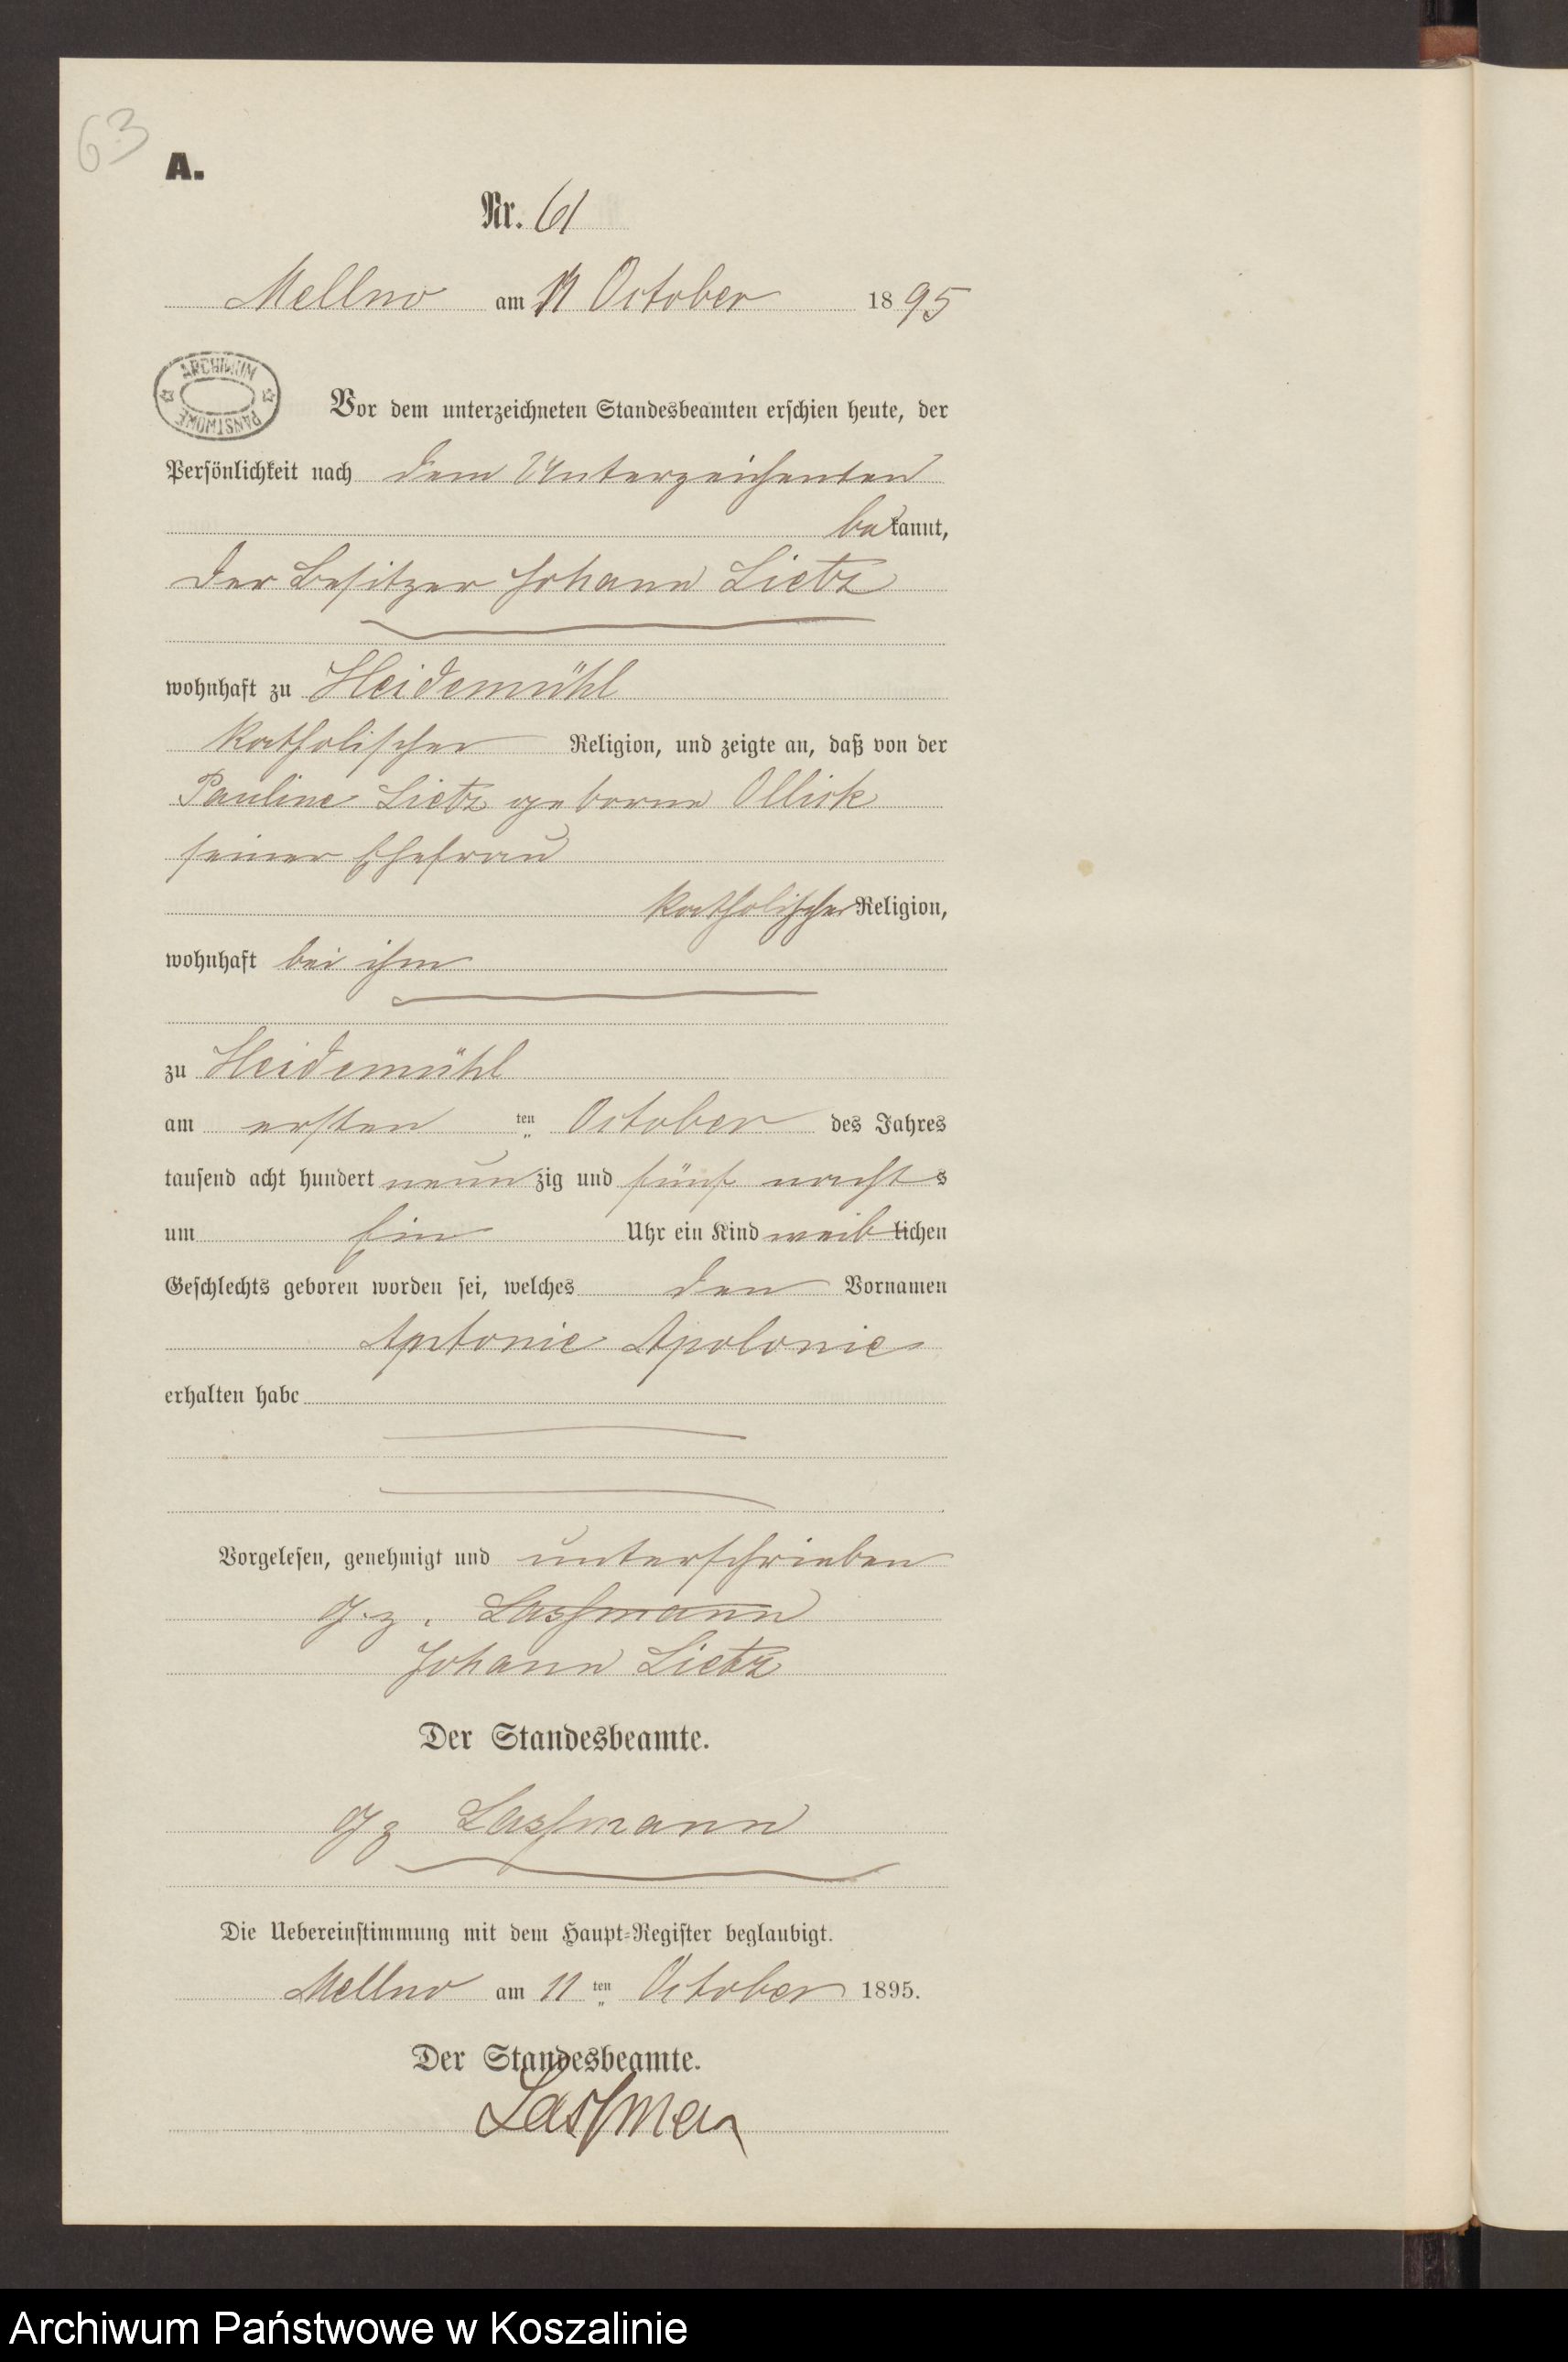 63
A.
Nr. 61
Mellno am 11 October 1895
ARCHIWUM
PAŃSTWOWE
Vor dem unterzeichneten Standesbeamten erschien heute, der
Persönlichkeit nach dem Unterzeichenten
bekannt,
der Besitzer Johann Lietz
wohnhaft zu Heidemühl
katholischer Religion, und zeigte an, daß von der
Pauline Lietz geborne Ollick
seiner Ehefrau
katholischer Religion,
wohnhaft bei ihm
zu Heidemühl
am ersten ten October des Jahres
tausend acht hundert neun zig und fünf nachts
um Ein Uhr ein Kind weiblichen
Geschlechts geboren worden sei, welches den Vornamen
Antonie Apolonie
erhalten habe
Vorgelesen, genehmigt und unterschrieben
g. z. Lassmann
Johann Lietz
Der Standesbeamte.
gz Lassmann
Die Uebereinstimmung mit dem Haupt-Register beglaubigt.
Mellno am 11 ten October 1895.
Der Standesbeamte.
Lassman
Archiwum Państwowe w Koszalinie